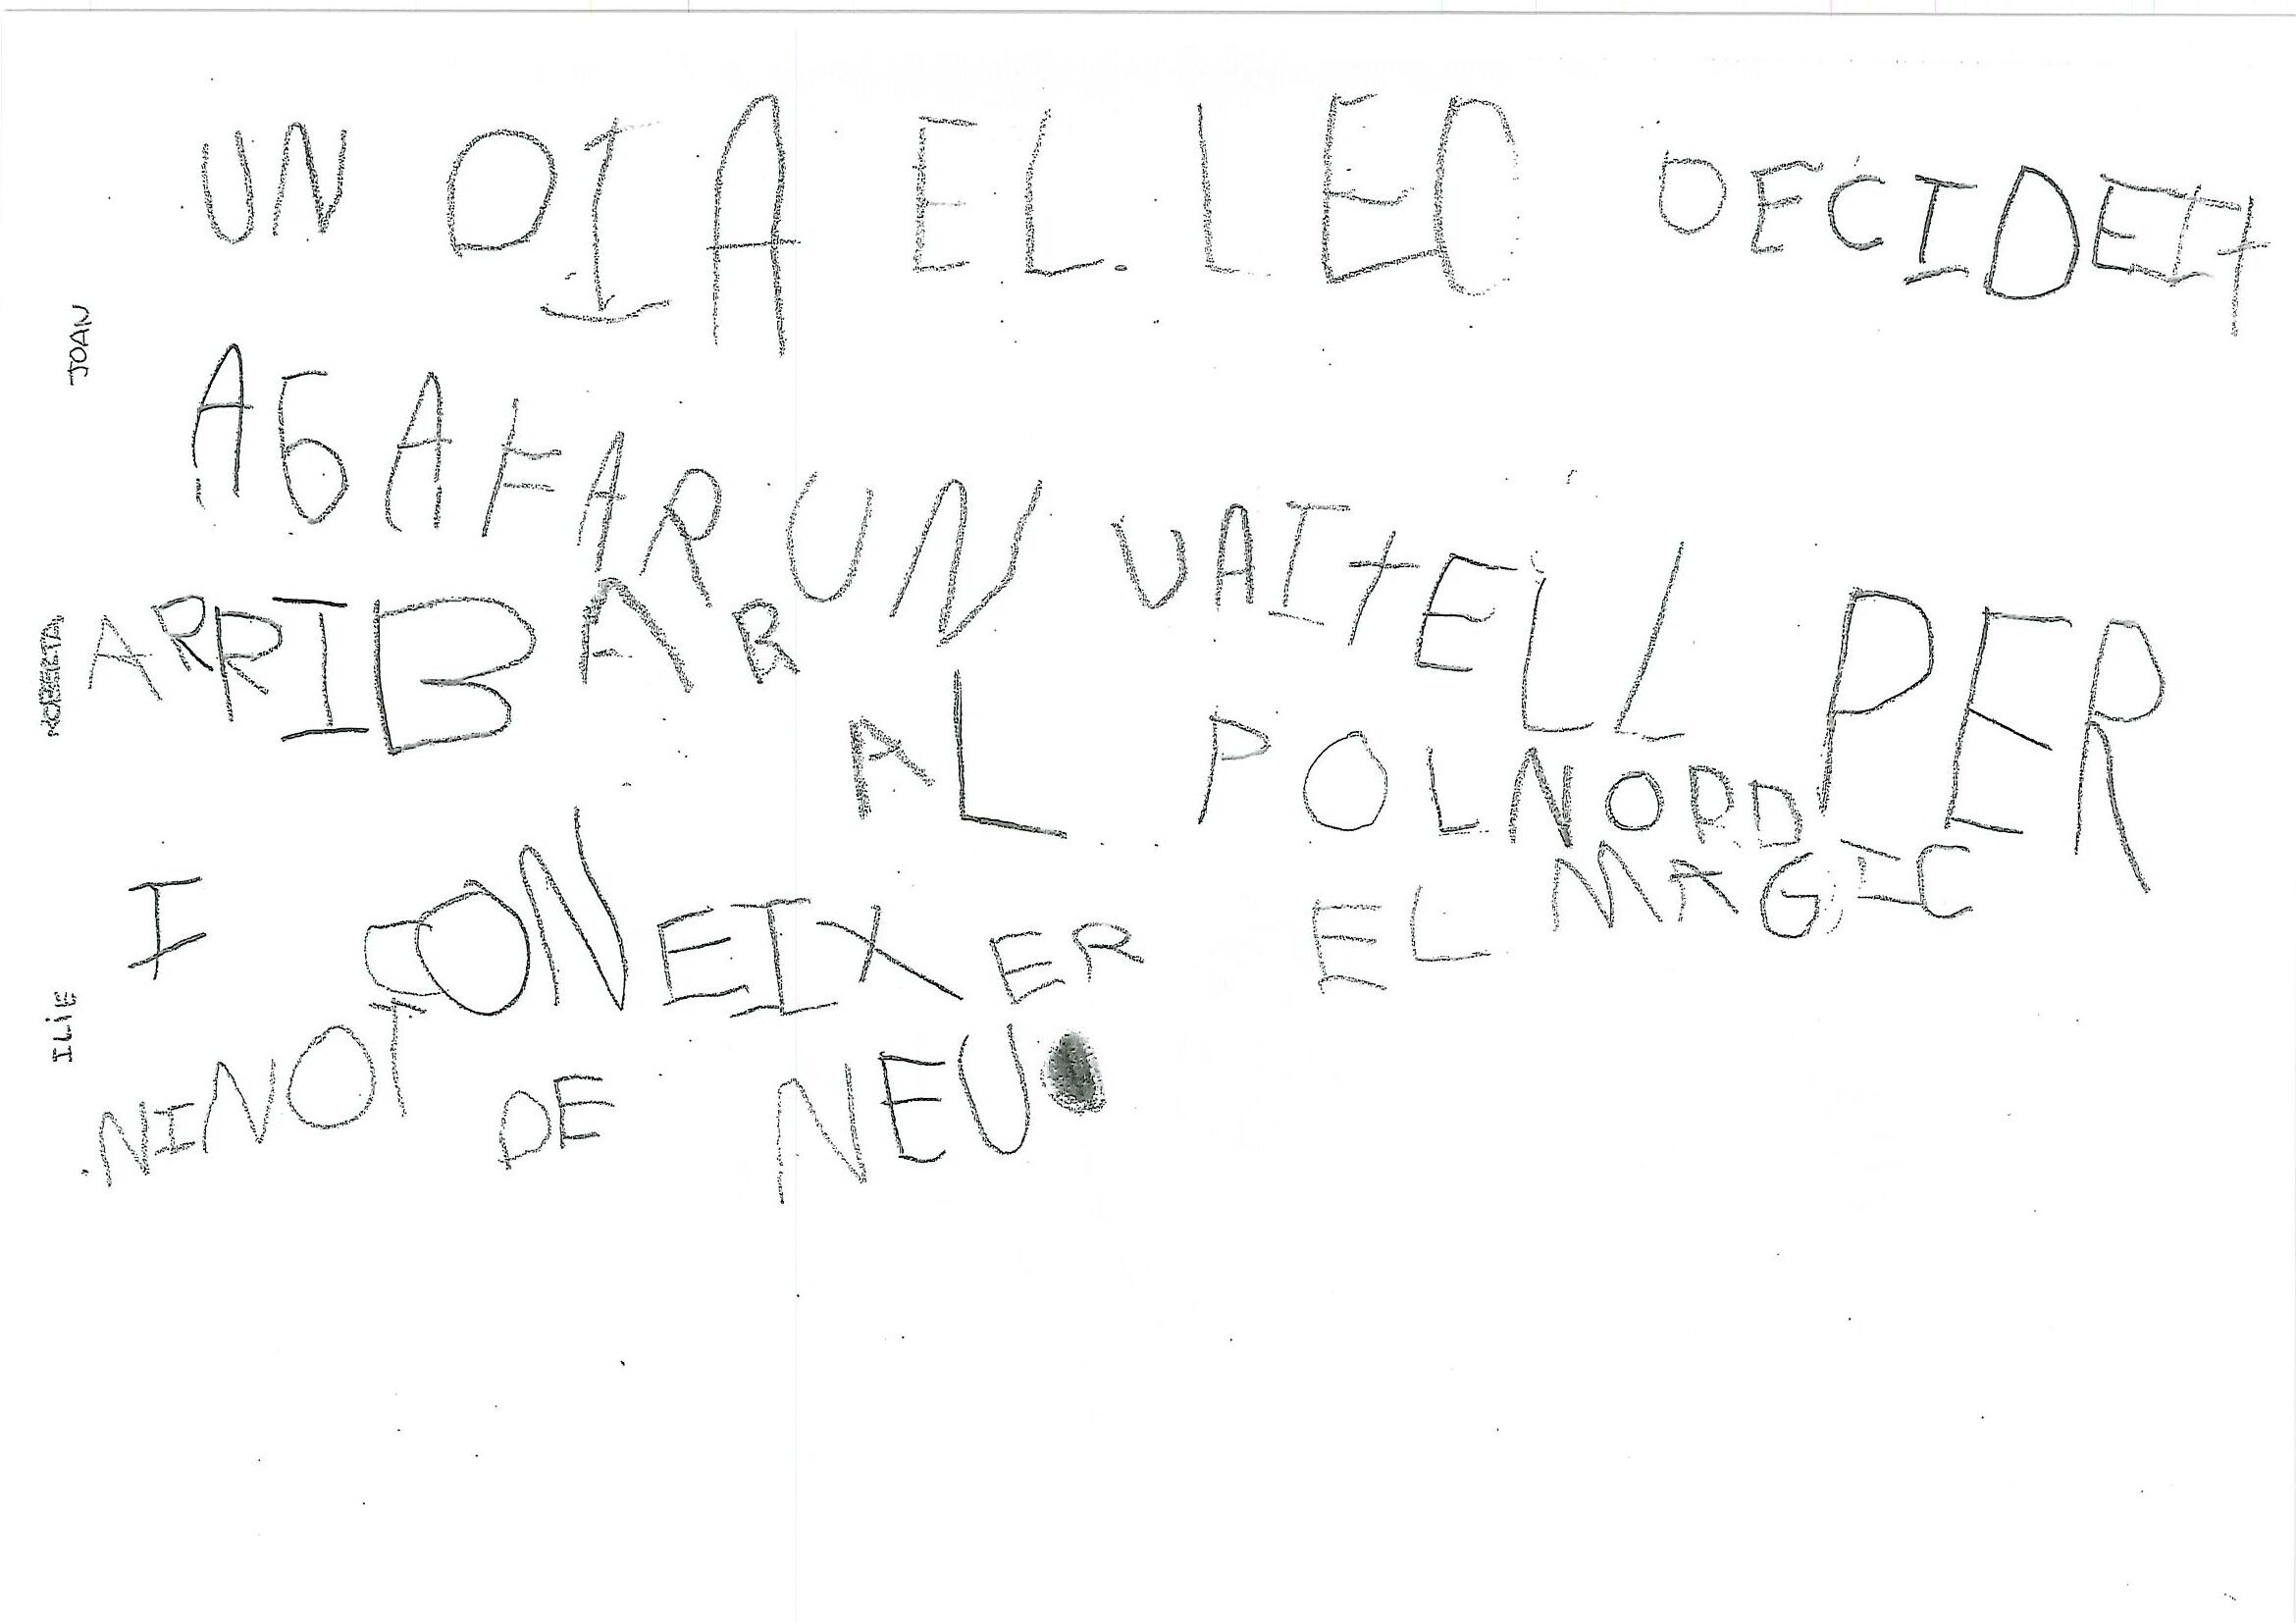 UN DIA EL. LEO DECIDEIT
AGAFAR UN VAITELL PER
ARRIBAR AL POLNORD
I CONEIXER EL MAGIC
NINOT DE NEU.
JOAN
ROBERTA
ILIE